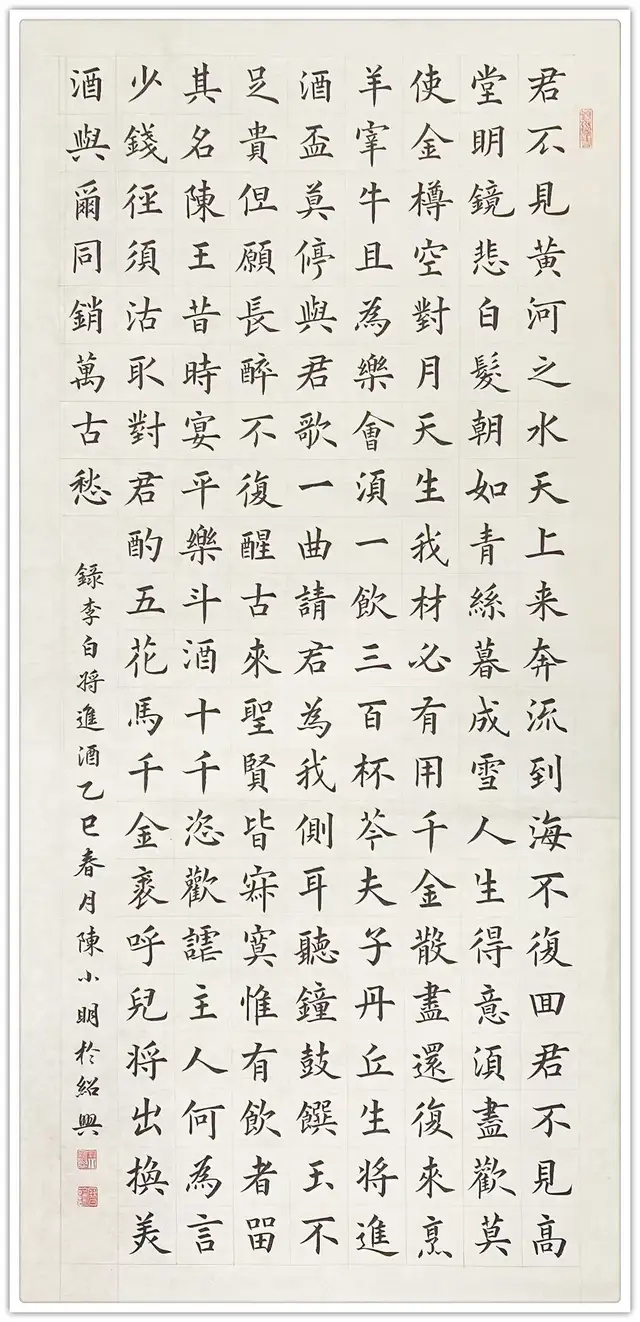 君不見黃河之水天上来奔流到海不復回君不見高
堂明鏡悲白髮朝如青絲暮成雪人生得意須盡歡莫
使金樽空對月天生我材必有用千金散盡還復來烹
羊宰牛且為樂會須一飲三百杯芩夫子丹丘生將進
酒盃莫停與君歌一曲請君為我側耳聽鐘鼓饌玉不
足貴但願長醉不復醒古來聖賢皆寂寞惟有飲者留
其名陳王昔時宴平樂斗酒十千恣歡謔主人何為言
少錢徑須沽取對君酌五花馬千金裘呼兒將出換美
酒與爾同銷萬古愁
錄李白將進酒乙巳春月陳小明於紹興